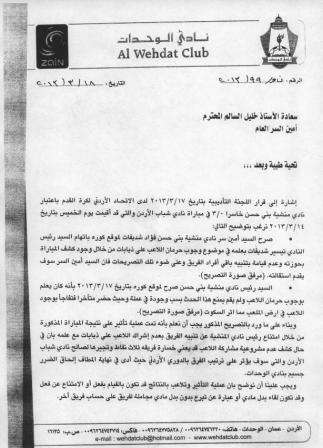 نادي الوحدات
Al Wehdat Club
zain
الرقم: 99 / 2013
التاريخ: 18 / 3 / 2013
سعادة الأستاذ خليل السالم المحترم
أمين السر العام
تحية طيبة وبعد ...
إشارة إلى قرار اللجنة التأديبية بتاريخ ٢٠١٣/٣/١٧ لدى الاتحاد الأردني لكرة القدم باعتبار
نادي منشية بني حسن خاسراً ٣/٠ في مباراة نادي شباب الأردن والتي قد أقيمت يوم الخميس بتاريخ
٢٠١٣/٣/١٤ نرغب بتوضيح التالي:
• صرح السيد أمين سر نادي منشية بني حسن فؤاد شديفات لموقع كوره باتهام السيد رئيس
النادي تيسير شديفات بعلمه في موضوع وجوب حرمان اللاعب علي ذيابات من خلال وجود كشف المباراة
بحوزته وعدم قيامه بتنبيه باقي أفراد الفريق وعلى ضوء تلك التصريحات فان السيد أمين السر سوف
يقدم استقالته. (مرفق صورة التصريح).
• السيد رئيس نادي منشية بني حسن صرح لموقع كوره بتاريخ ٢٠١٣/٣/١٧ بأنه كان يعلم
بوجوب حرمان اللاعب ولم يقم بمنع هذا الحدث بسبب وجوده في عملة وحيث حضر متأخرا فتفاجأ بوجود
اللاعب في ارض الملعب مما اثر السكوت (مرفق صورة التصريح).
وبناء على ما ورد بالتصريح المذكور يجب أن نعلم بأنه تمت عملية تأثير على نتيجة المباراة المذكورة
من خلال امتناع رئيس نادي المنشية عن تنبيه الفريق بعدم إشراك اللاعب علي ذيابات مع علمه بان في
حال كشف عدم مشروعية مشاركة اللاعب قد يعني خسارة فريقه ثلاث نقاط وتجيرها لصالح نادي شباب
الأردن والتي سوف يؤثر على ترتيب الفرق بالدوري الأردني حيث أدى في نهاية المطاف إلحاق الضرر
جسيم بنادي الوحدات.
ويجب علينا أن نوضح بان عملية التأثير وتلاعب بالنتائج قد تكون بالقيام بفعل أو الامتناع عن فعل
وقد تكون لقاء بدل مادي أو عبارة عن تبرع بدون بدل مادي مجاملة لفريق على حساب فريق آخر.
e-mail : wehdatclub@hotmail.com - wehdatclub.com